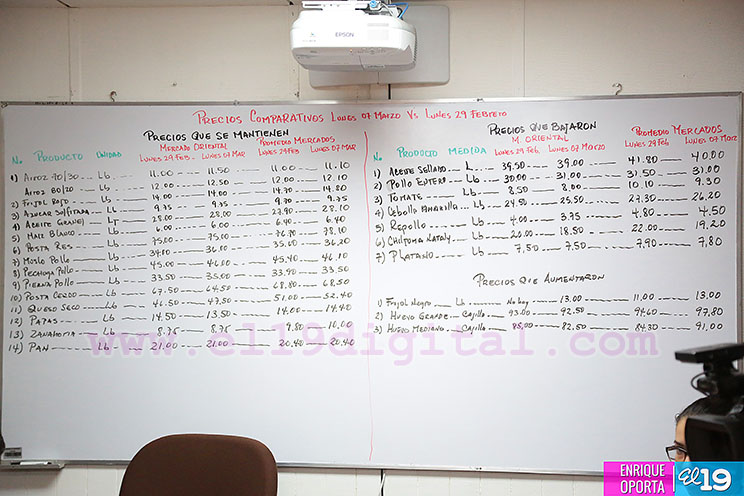 EPSON
PRECIOS COMPARATIVOS LUNES 07 MARZO VS LUNES 29 FEBRERO
PRECIOS QUE SE MANTIENEN
MERCADO ORIENTAL PROMEDIO MERCADOS
No PRODUCTO UNIDAD LUNES 29 FEB. LUNES 07 MAR LUNES 29 FEB LUNES 07 MAR
1) ARROZ 70/30 Lb 11.00 11.50 11.00 11.10
ARROZ 80/20 Lb 12.00 12.50 12.00 12.10
2) FRIJOL ROJO Lb 14.00 14.00 14.70 14.80
3) AZUCAR SULFITADA Lb 9.75 9.75 9.75 9.75
4) ACEITE GRANEL LT 28.00 28.00 27.90 28.10
5) MAIZ BLANCO Lb 6.00 6.00 6.40 6.40
6) POSTA RES Lb 75.00 75.00 76.70 78.10
7) MOSLO POLLO Lb 34.00 36.00 35.60 36.20
8) PECHUGA POLLO Lb 45.00 46.00 45.40 46.10
9) PIERNA POLLO Lb 33.50 33.00 33.90 33.50
10) POSTA CERDO Lb 67.50 64.50 68.80 68.50
11) QUESO SECO Lb 46.50 47.50 51.00 52.40
12) PAPAS Lb 14.50 13.50 14.00 14.40
13) ZANAHORIA Lb 8.75 8.75 9.80 10.00
14) PAN Lb 21.00 21.00 20.40 20.40
PRECIOS QUE BAJARON
M. ORIENTAL PROMEDIO MERCADOS
No PRODUCTO MEDIDA LUNES 29 FEB. LUNES 07 MARZO LUNES 29 FEB LUNES 07 MARZO
1) ACEITE SELLADO L 39.50 39.00 41.80 40.00
2) POLLO ENTERO Lb 30.00 31.00 31.50 31.00
3) TOMATE Lb 8.50 8.00 10.10 9.30
4) CEBOLLA AMARILLA Lb 24.50 25.50 27.30 26.20
5) REPOLLO Lb 4.00 3.75 4.80 4.50
6) CHILTOMA NATALY Lb 20.00 18.50 22.00 19.20
7) PLATANO Lb 7.50 7.50 7.90 7.80
PRECIOS QUE AUMENTARON
1) FRIJOL NEGRO Lb No hay 13.00 11.00 13.00
2) HUEVO GRANDE Cajilla 93.00 92.50 94.60 97.80
3) HUEVO MEDIANO Cajilla 85.00 82.50 84.30 91.00
www.el19digital.com
19
ENRIQUE OPORTA
El 19